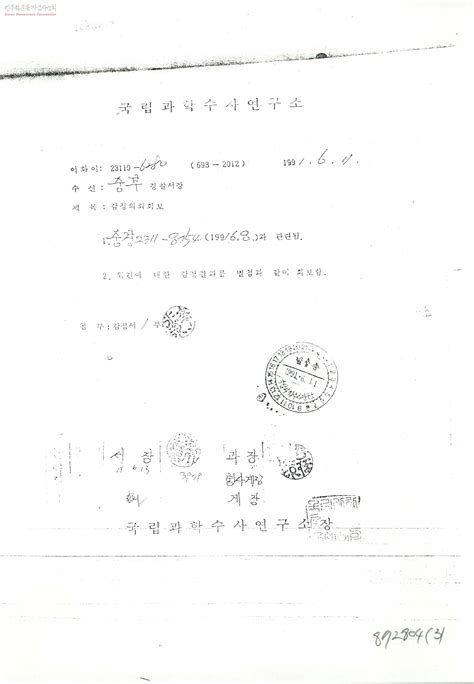 민주화운동기념사업회
Korea Democracy Foundation
국립과학수사연구소
이화이: 23110-6080 (693-2012) 1991.6.11.
수 신: 중부 경찰서장
제 목: 감정의뢰회보
1. 중강2311-8754 (1991.6.8.)과 관련됨.
2. 위건에 대한 감정결과를 별첨과 같이 회보함.
첨 부: 감정서 1부
1991.6.11
서 장 과장
형사계장
계 장
국립과학수사연구소장
892804(3)